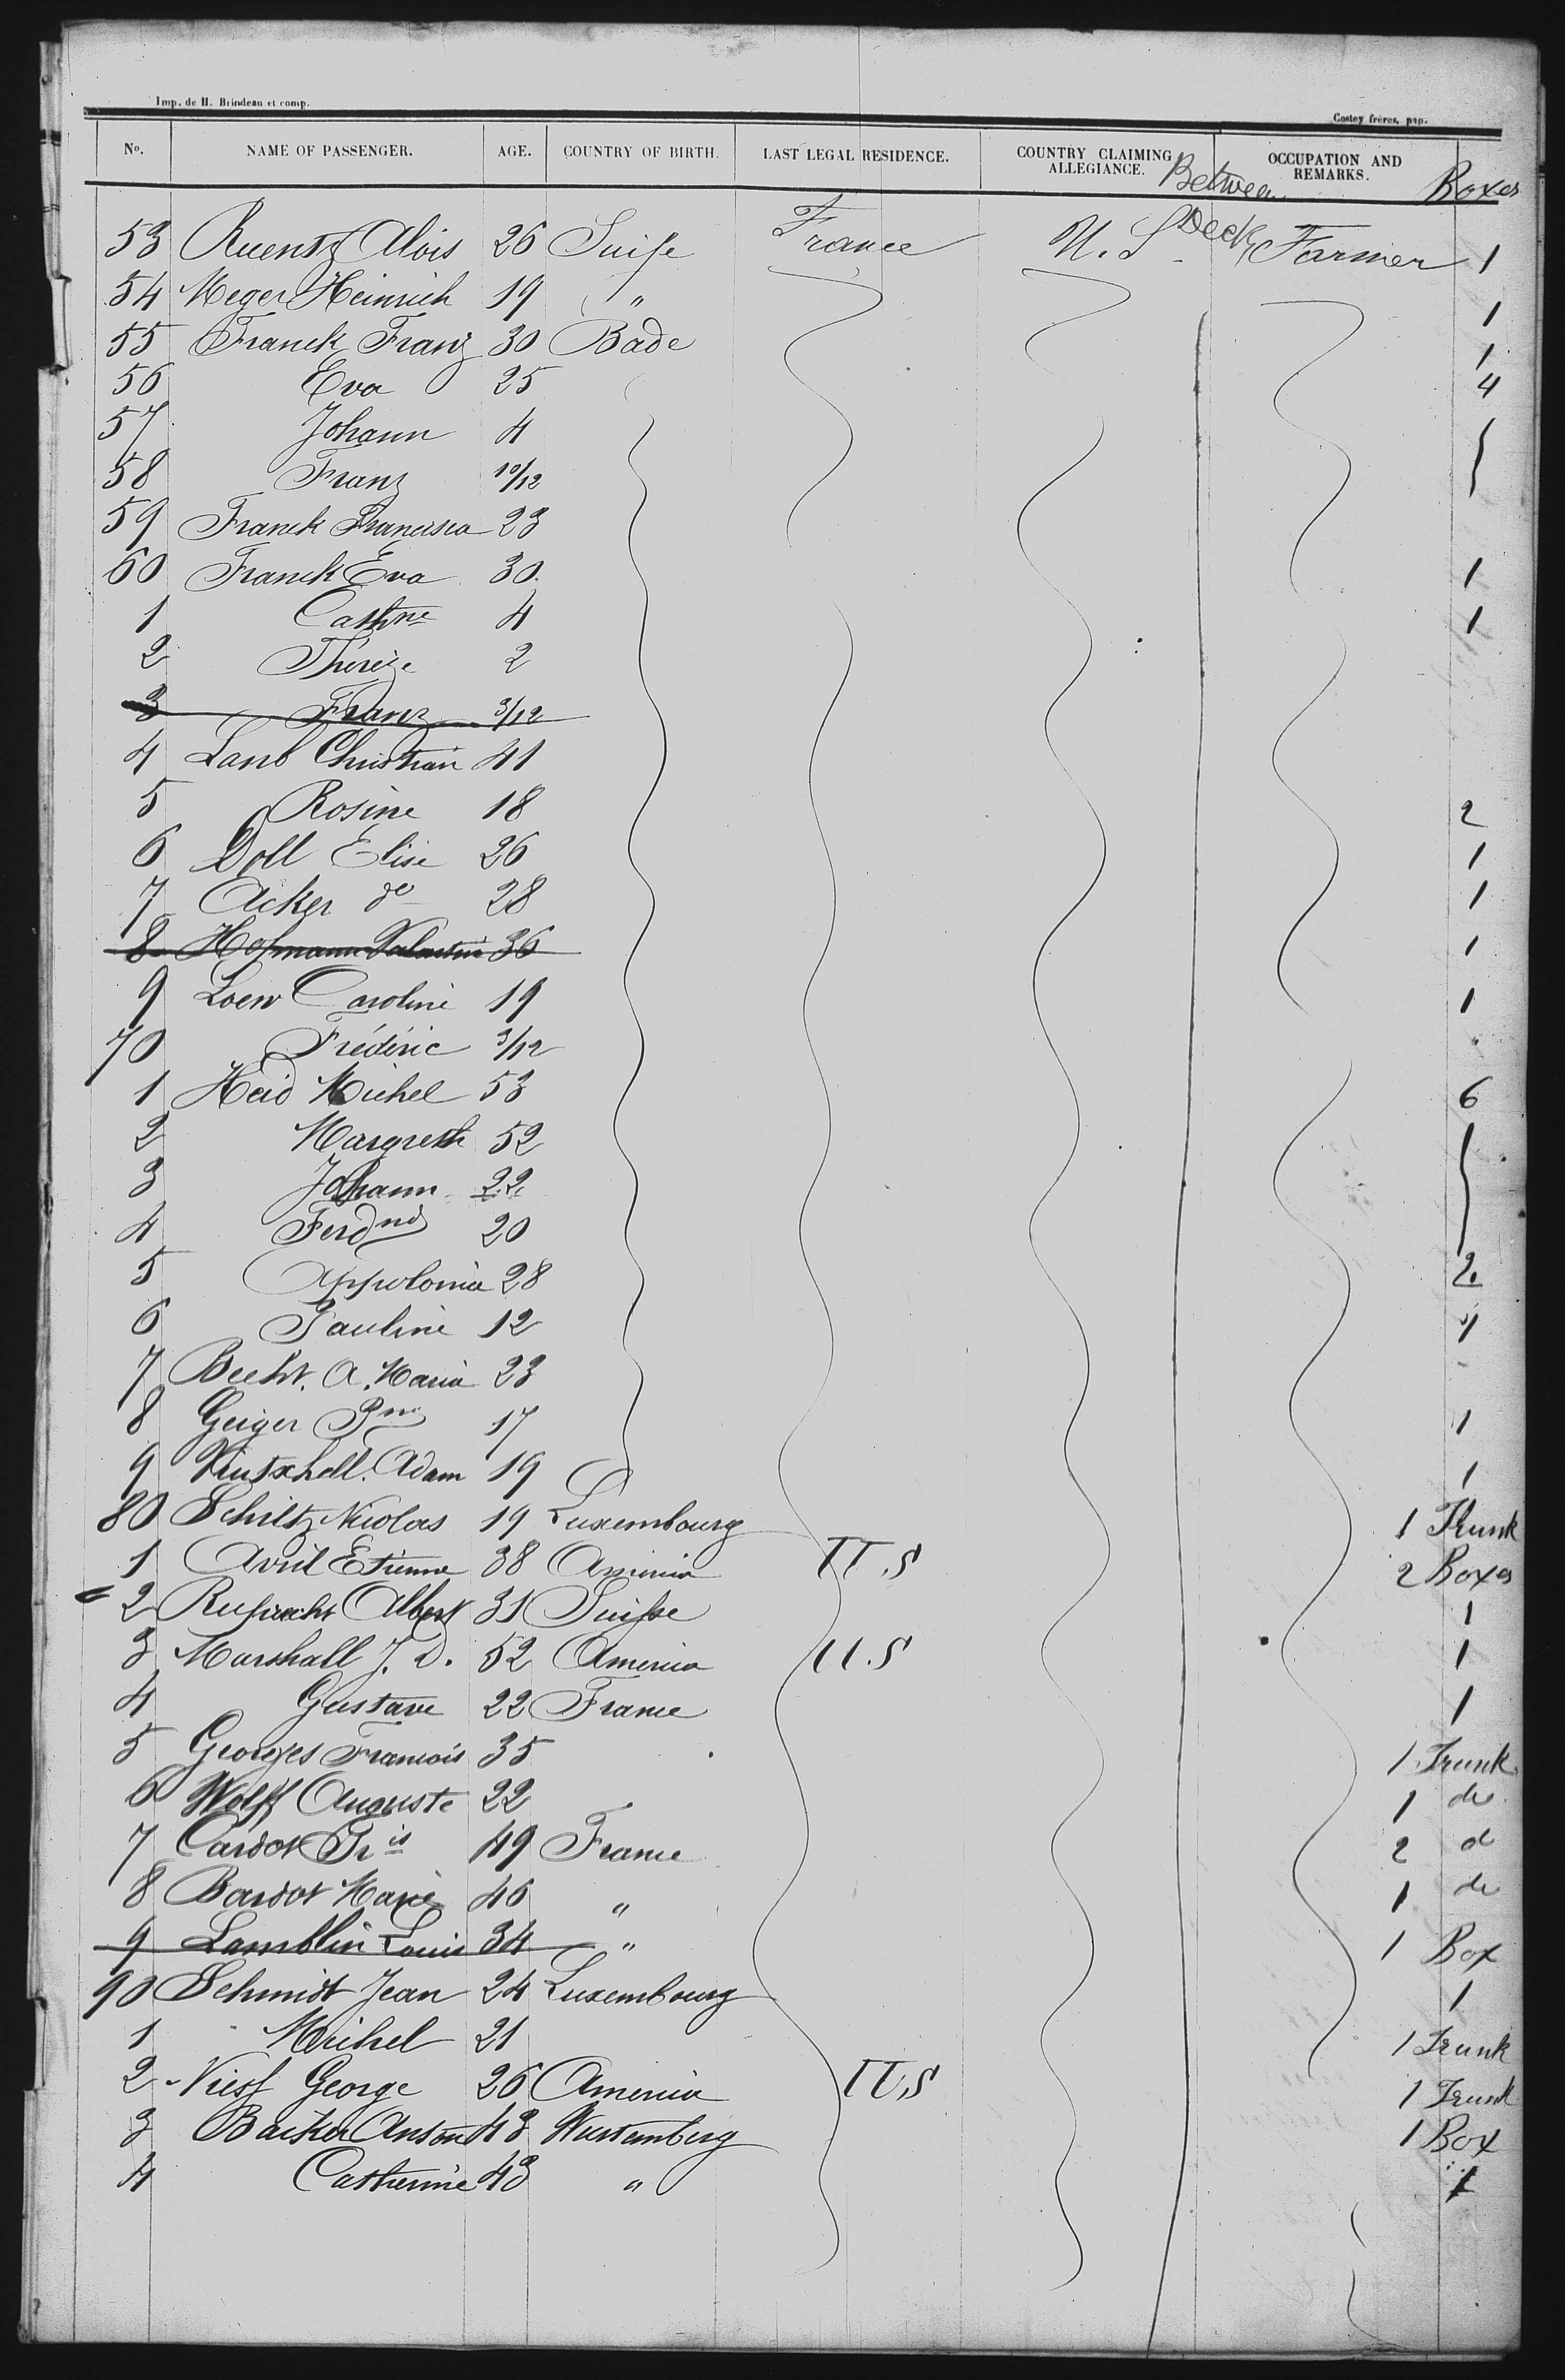 Imp. de H. Brindeau et comp.
Costey frères, pap.
No. NAME OF PASSENGER. AGE. COUNTRY OF BIRTH. LAST LEGAL RESIDENCE. COUNTRY CLAIMING ALLEGIANCE. OCCUPATION AND REMARKS. Boxes
Between Deck
53 Ruentz Alois 26 Suisse France U.S Farmer 1
54 Meger Heinrich 19 " 1
55 Franck Franz 30 Bade 1
56 Eva 25 4
57 Johann 4
58 Franz 10/12
59 Franck Francisca 23
60 Franck Eva 30 1
1 Cathne 4 1
2 Thereze 2
3 Franz 3/12
4 Lanb Christian 41
5 Rosine 18 2
6 Doll Elise 26 1
7 Acker do 28 1
8 Hofmann Valentin 36 1
9 Loew Caroline 19 1
70 Frédéric 3/12
1 Heid Michel 53 6
2 Margreth 52
3 Johann 22
4 Ferdnd 20
5 Appolonia 28 2
6 Pauline 12 1
7 Becht. A. Maria 23
8 Geiger 17 1
9 Adam 19 1
80 Schiltz Nicolas 19 Luxembourg 1 Trunk
1 Avril Etienne 38 America U.S 2 Boxes
2 Ruprecht Albert 31 Suisse 1
3 Marshall J. D. 52 America U.S 1
4 Gustave 22 France 1
5 Georges Francois 35 1 Trunk
6 Wolff Auguste 22 1 do
7 Cardot Fris 49 France 2 d
8 Bardot Marie 46 " 1 do
9 Lamblin Louis 34 " 1 Box
90 Schmidt Jean 24 Luxembourg 1
1 Michel 21 1 Trunk
2 George 26 America U.S 1 Trunk
3 Anton 43 Wurtemberg 1 Box
4 Catherine 43 " 1